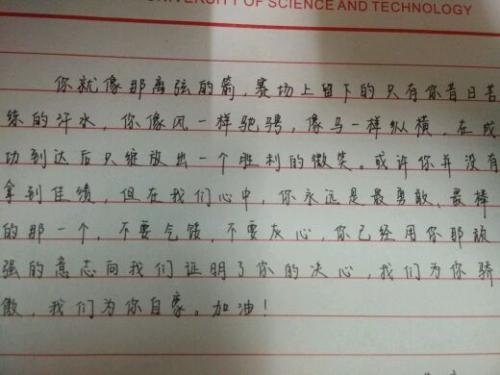 UNIVERSITY OF SCIENCE AND TECHNOLOGY
你就像那离弦的箭，赛场上留下的只有你昔日苦
练的汗水，你像风一样驰骋，像马一样纵横，在成
功到达后只绽放出一个胜利的微笑。或许你并没有
拿到佳绩，但在我们心中，你永远是最勇敢、最棒
的那一个，不要气馁，不要灰心，你已经用你那顽
强的意志向我们证明了你的决心，我们为你骄
傲，我们为你自豪。加油！